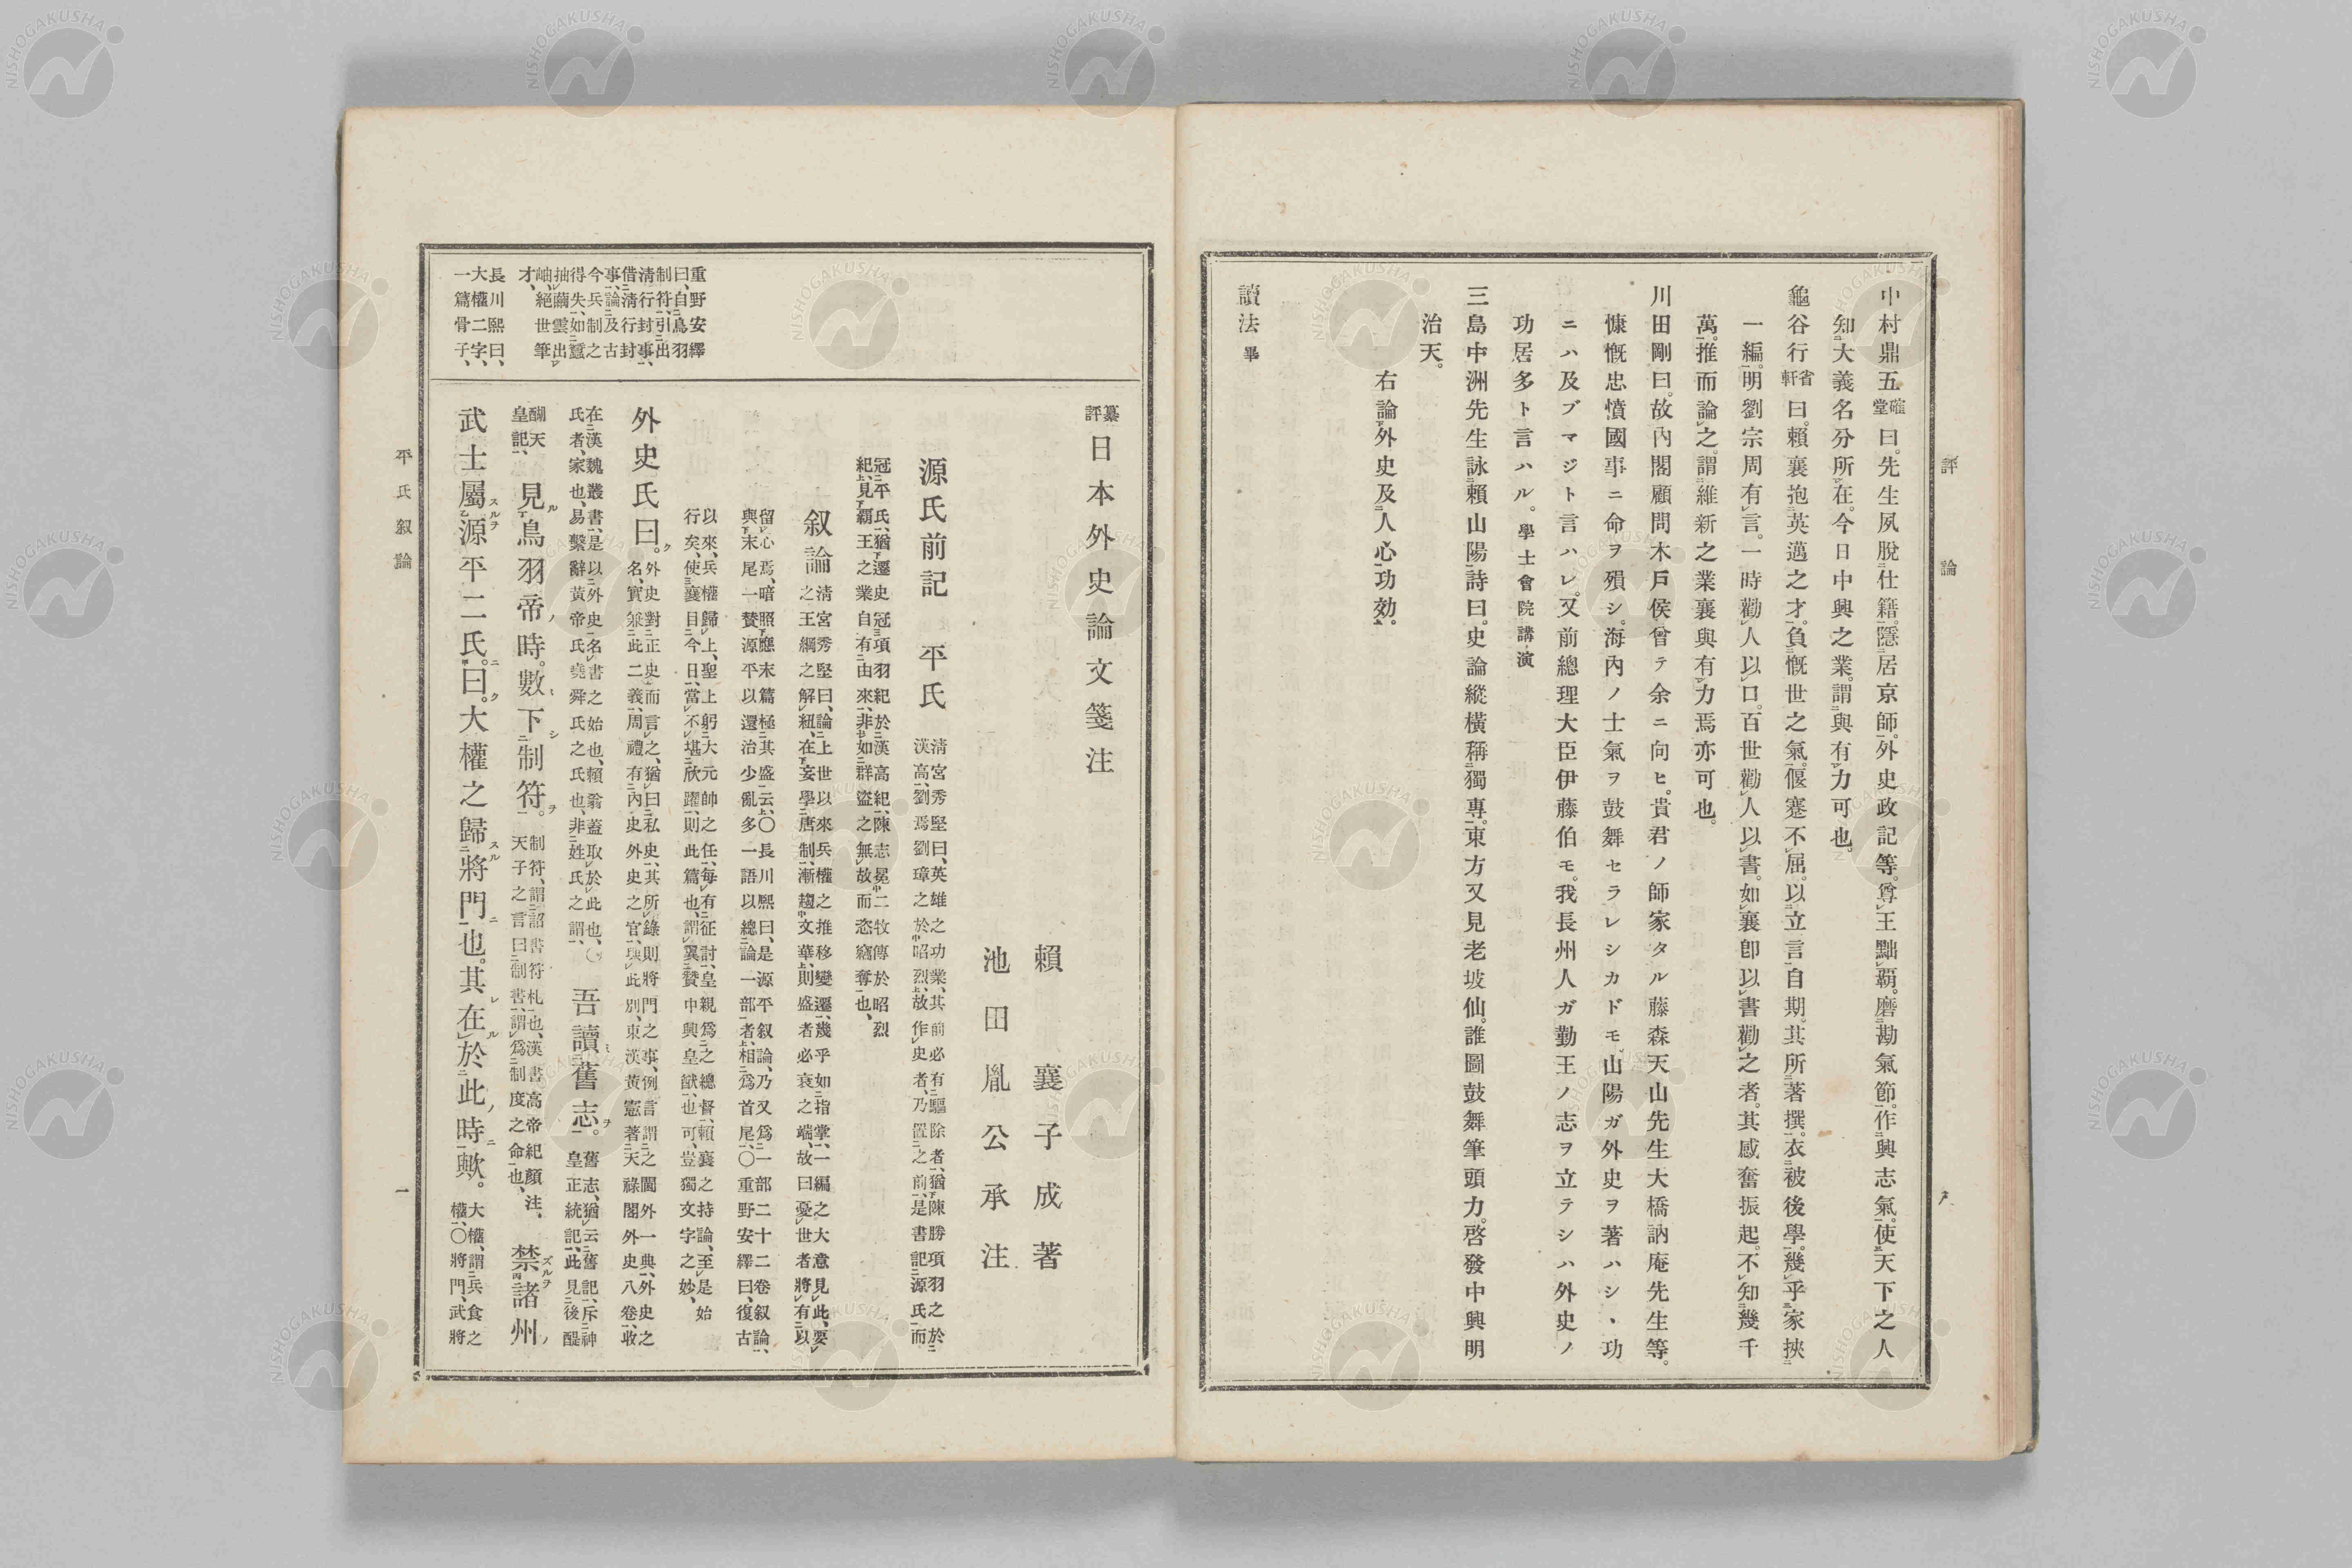 評論
中村鼎五確堂曰。先生夙脫仕籍。隱居京師。外史政記等。尊王黜覇。磨勘氣節。作興志氣。使天下之人
知大義名分所在。今日中興之業。謂與有力可也。
龜谷行省軒曰。賴襄抱英邁之才。負慨世之氣。偃蹇不屈。以立言自期。其所著撰。衣被後學。幾乎家挾
一編。明劉宗周有言。一時勸人以口。百世勸人以書。如襄卽以書勸之者。其感奮振起。不知幾千
萬。推而論之。謂維新之業襄與有力焉亦可也。
川田剛曰。故內閣顧問木戶侯曾テ余ニ向ヒ。貴君ノ師家タル藤森天山先生大橋訥庵先生等。
慷慨忠憤國事ニ命ヲ殞シ。海內ノ士氣ヲ鼓舞セラレシカドモ。山陽ガ外史ヲ著ハシヽ功
ニハ及ブマジト言ハレ。又前總理大臣伊藤伯モ。我長州人ガ勤王ノ志ヲ立テシハ外史ノ
功居多ト言ハル。學士會院講演
三島中洲先生詠賴山陽詩曰。史論縱橫稱獨專。東方又見老坡仙。誰圖鼓舞筆頭力。啓發中興明
治天。
右論外史及人心功効。
讀法畢
重野安繹
曰、自鳥羽
制符、引出
淸行封事、
借淸行封
事、論及古
今兵制之
得失、如蠶
抽繭雲出
岫、絕世筆
才、
長川熙曰、
大權二字、
一篇骨子、
纂評日本外史論文箋注
賴襄子成著
池田胤公承注
源氏前記 平氏
淸宮秀堅曰、英雄之功業、其前必有驅除者、猶陳勝項羽之於
漢高、劉焉劉璋之於昭烈、故作史者、乃置之前、是書記源氏、而
冠平氏、猶遷史冠項羽紀於漢高紀、陳志冕二牧傳於昭烈
紀、見覇王之業自有由來、非如群盜之無故而恣竊奪也、
叙論
淸宮秀堅曰、論上世以來兵權之推移變遷、幾乎如指掌、一編之大意見此、要
之王綱之解紐、在妄學唐制、漸趨文華、則盛者必衰之端、故曰憂世者將有以
留心焉、暗照應末篇極其盛云、〇長川熙曰、是源平叙論、乃又爲一部二十二卷叙論、
與末尾一賛源平以還治少亂多一語以總論一部者、相爲首尾、〇重野安繹曰、復古
以來、兵權歸上、聖上躬大元帥之任、每有征討、皇親爲之總督、賴襄之持論、至是始
行矣、使襄目今日、當不堪欣躍、則此篇也、謂翼賛中興皇猷也可、豈獨文字之妙、
外史氏曰。
外史對正史而言之、猶曰私史、其所錄則將門之事、例言謂之閫外一典、外史之
名、實兼此二義、周禮有內史外史之官、與此別、東漢黃憲著天祿閣外史八卷、收
在漢魏叢書、是以外史名書之始也、賴翁蓋取於此也、〇
氏者、家也、易繫辭黃帝氏堯舜氏之氏也、非姓氏之謂、
吾讀舊志。
舊志、猶云舊記、斥神
皇正統記、此見後醍
醐天
皇記、
見鳥羽帝時。數下制符。
制符、謂詔書符札也、漢書高帝紀顏注、
天子之言曰制書、謂爲制度之命也、
禁諸州
武士屬源平二氏。曰。大權之歸將門也。其在於此時歟。
大權、謂兵食之
權、〇將門、武將
平氏叙論
一